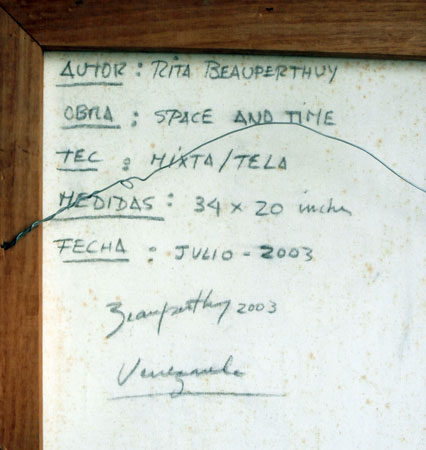 AUTOR: RITA BEAUPERTHUY
OBRA : SPACE AND TIME
TEC : MIXTA/TELA
MEDIDAS: 34 x 20 inches
FECHA : JULIO - 2003
Beauperthuy 2003
Venezuela